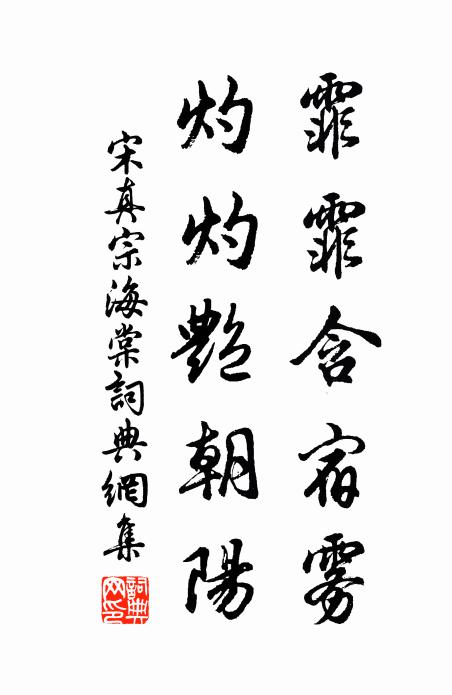 霏霏含宿雾
灼灼艷朝陽
宋真宗海棠詞典網集
詞典網印